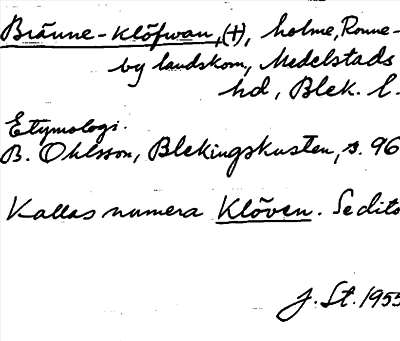 Bränne-Klöfwan, (†), holme, Ronne-
by landskom, Medelstads
hd, Blek. l.
Etymologi.
B. Ohlsson, Blekingskusten, s. 96
Kallas numera Klöven. Se dito
J. St. 1955